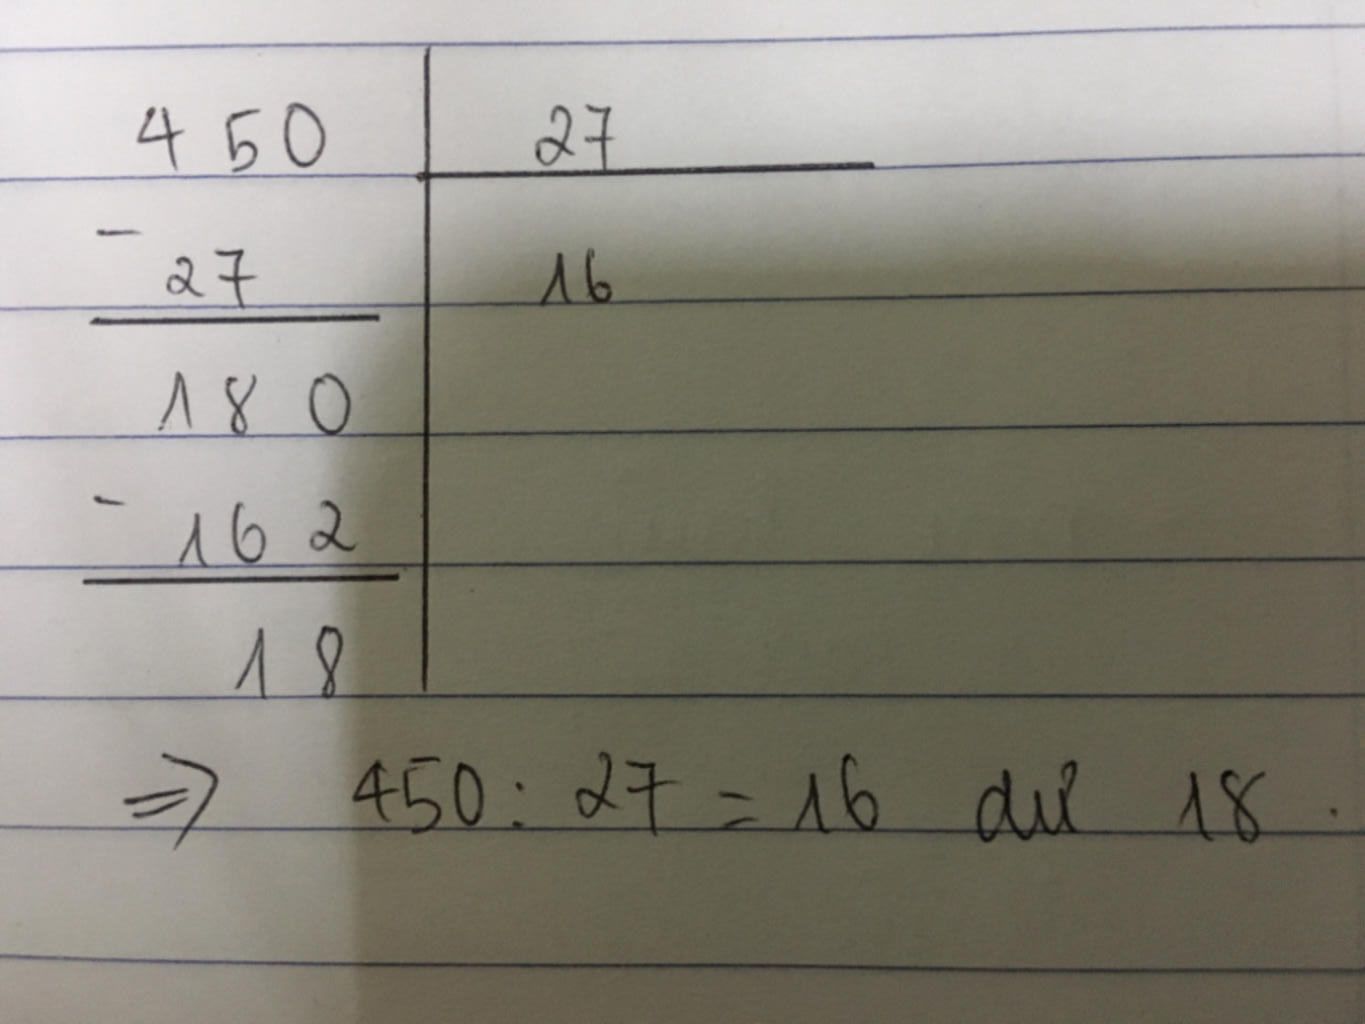 450 27
- 27 16
180
- 162
18
⇒ 450 : 27 = 16 dư 18 .